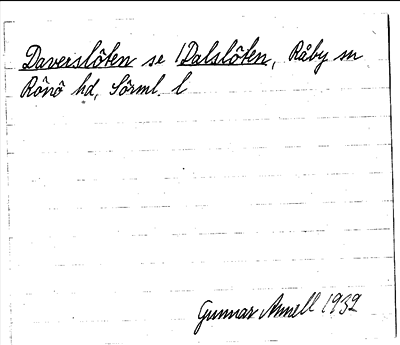 Daverslöten se 1Dalslöten, Råby sn
Rönö hd, Sörml. l
Gunnar Annell 1932